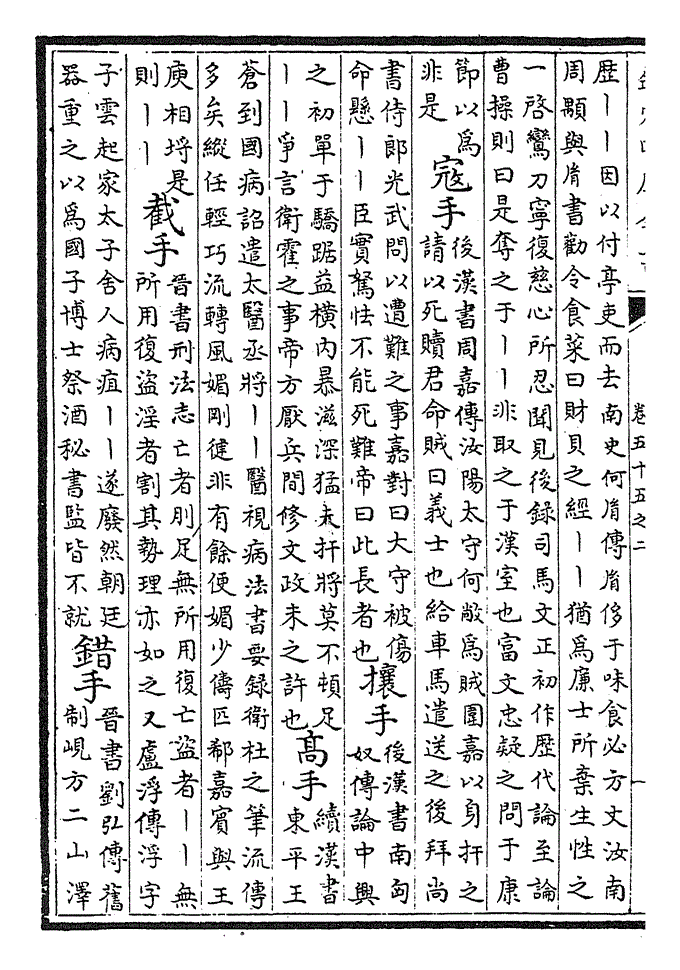 卷五十五之二
歷丨丨因以付亭吏而去 南史何胤傳胤侈于味食必方丈汝南
周顒與胤書勸令食菜曰財貝之經丨丨猶為廉士所棄生性之
一啓鸞刀寧復慈心所忍聞見後録司馬文正初作歷代論至論
曹操則曰是奪之于丨丨非取之于漢室也富文忠疑之問于康
節以為
非是
寇手
後漢書周嘉傳汝陽太守何敞為賊圍嘉以身扞之
請以死贖君命賊曰義士也給車馬遣送之後拜尚
書侍郎光武問以遭難之事嘉對曰大守被傷
命懸丨丨臣實駑怯不能死難帝曰此長者也
攘手
後漢書南匈
奴傳論中興
之初單于驕踞益橫内暴滋深猛夫扞將莫不頓足
丨丨爭言衛霍之事帝方厭兵間修文政未之許也
高手
續漢書
東平王
蒼到國病詔遣太醫丞將丨丨醫視病法書要録衛杜之筆流傳
多矣縱任輕巧流轉風媚剛健非有餘便媚少儔匹郗嘉賓與王
庾相埒是
則丨丨
截手
晉書刑法志亡者刖足無所用復亡盜者丨丨無
所用復盜淫者割其勢理亦如之又盧浮傳浮字
子雲起家太子舍人病疽丨丨遂廢然朝廷
器重之以為國子博士祭酒秘書監皆不就
錯手
晉書劉弘傳舊
制峴方二山澤